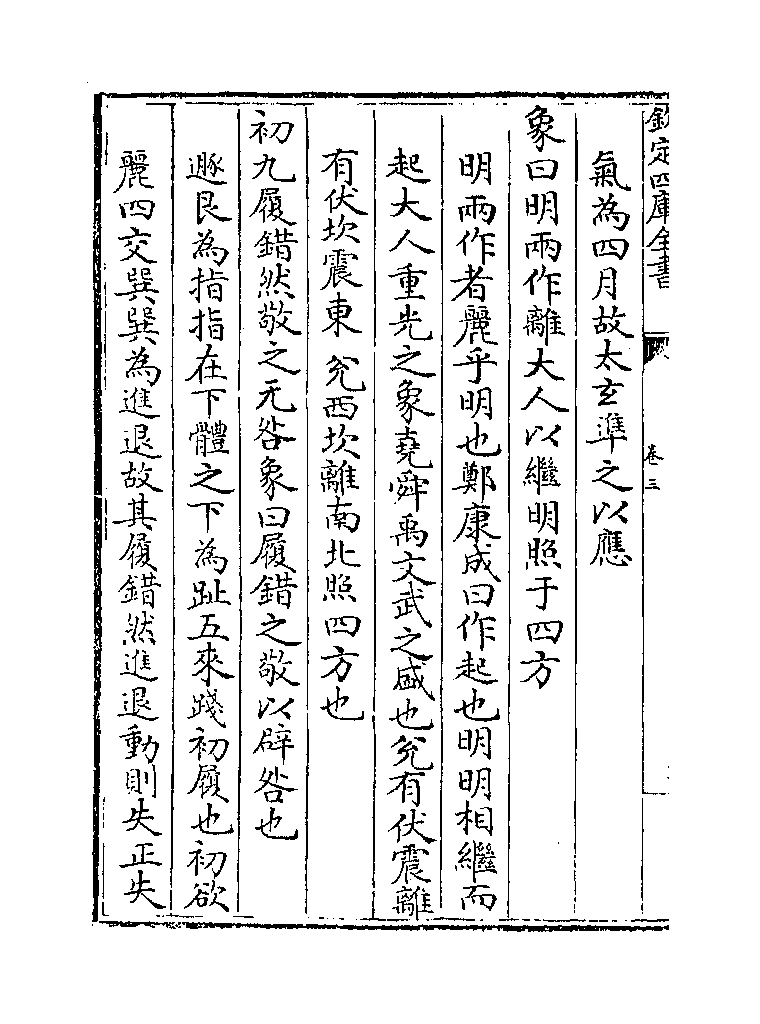 欽定四庫全書
卷三
氣為四月故太玄準之以應
象曰明兩作離大人以繼明照于四方
明兩作者麗乎明也鄭康成曰作起也明明相繼而
起大人重光之象堯舜禹文武之盛也兊有伏震離
有伏坎震東兊西坎離南北照四方也
初九履錯然敬之无咎象曰履錯之敬以辟咎也
遯艮為指指在下體之下為趾五來踐初履也初欲
麗四交巽巽為進退故其履錯然進退動則失正失